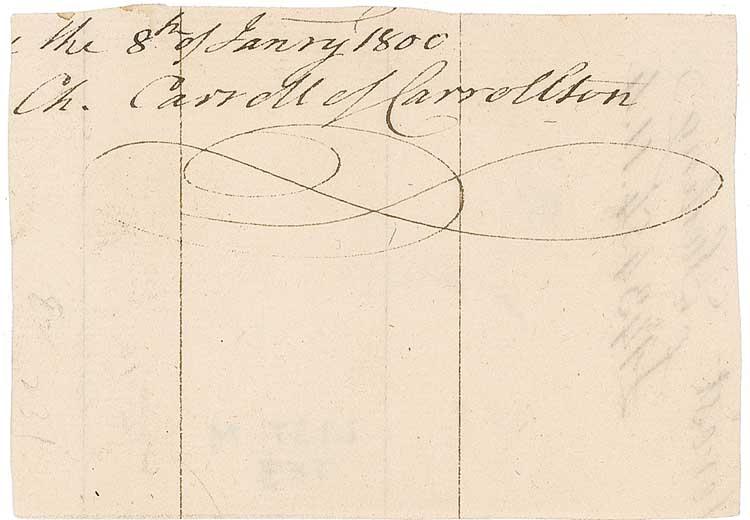 the 8th of Janry 1800
Ch. Carroll of Carrollton